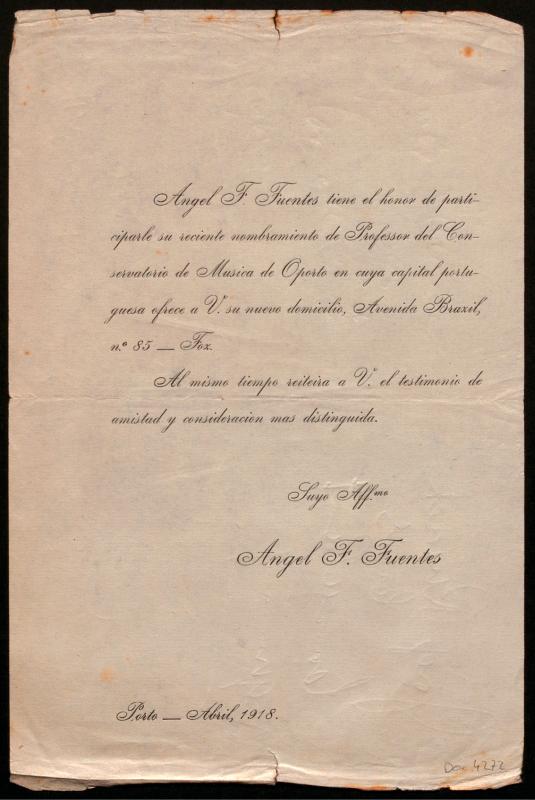 Angel F. Fuentes tiene el honor de parti-
ciparle su reciente nombramiento de Professor del Con-
servatorio de Musica de Oporto en cuya capital portu-
guesa ofrece a V. su nuevo domicilio, Avenida Brazil,
n.º 85 — Foz.
Al mismo tiempo reiteira a V. el testimonio de
amistad y consideracion mas distinguida.
Suyo Aff.mo
Angel F. Fuentes
Porto — Abril, 1918.
Doc 4272